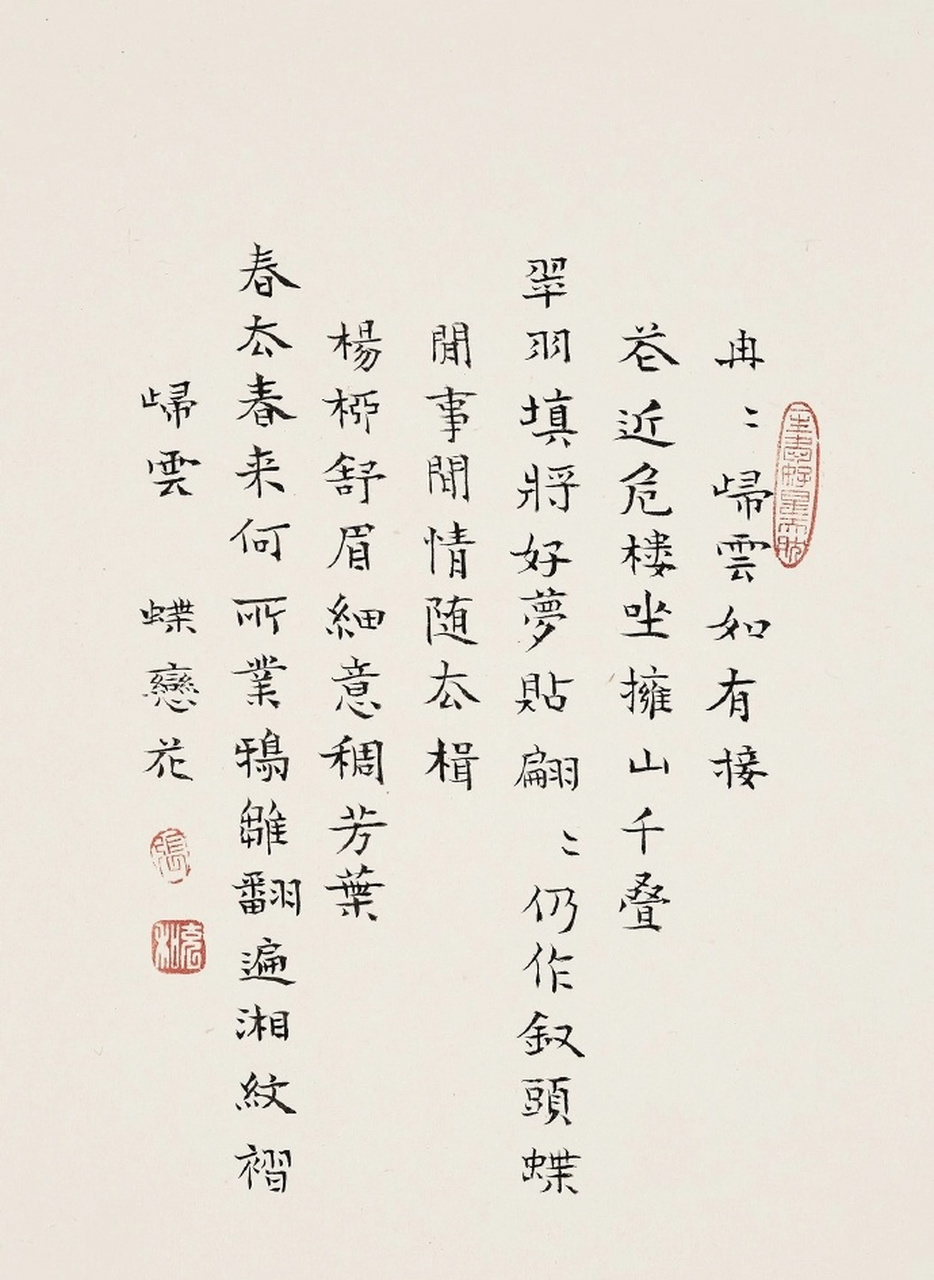 冉〻㱕雲如有接
花近危楼坐擁山千叠
翠羽填將好夢貼翩〻仍作釵頭蝶
閒事閒情随厺楫
楊桺舒眉細意稠芳葉
春厺春来何所業鴉雛翻遍湘紋褶
㱕雲 蝶戀花
張